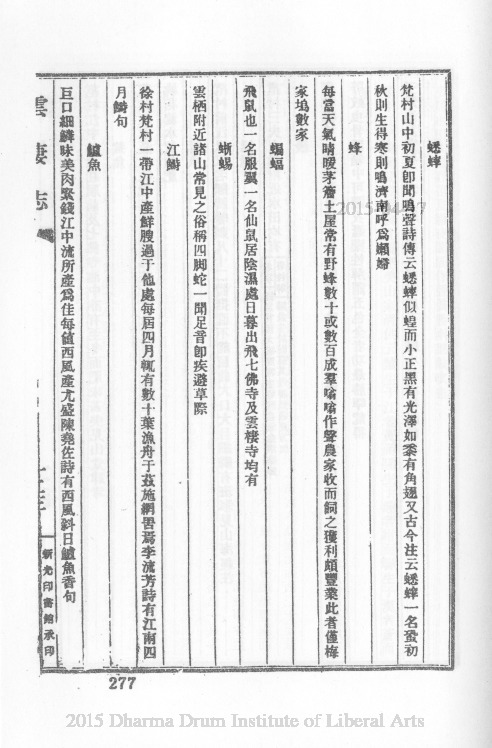 蟋蟀
梵村山中初夏卽聞鳴聲詩傳云蟋蟀似蝗而小正黑有光澤如漆有角翅又古今注云蟋蟀一名蛩初
秋則生得寒則鳴濟南呼爲嬾婦
蜂
每當天氣晴暖茅簷土屋常有野蜂數十或數百成羣嗡嗡作聲農家收而飼之獲利頗豐業此者僅梅
家塢數家
蝙蝠
飛鼠也一名服翼一名仙鼠居陰濕處日暮出飛七佛寺及雲棲寺均有
蜥蜴
雲栖附近諸山常見之俗稱四脚蛇一聞足音卽疾避草際
江鰣
徐村梵村一帶江中產鮮腴過于他處每屆四月輒有數十葉漁舟于茲施網罟焉李流芳詩有江南四
月鰣句
鱸魚
巨口細鱗味美肉緊錢江中流所產爲佳每値西風產尤盛陳堯佐詩有西風斜日鱸魚香句
雲棲志
新光印書館承印
277
2015 Dharma Drum Institute of Liberal Arts